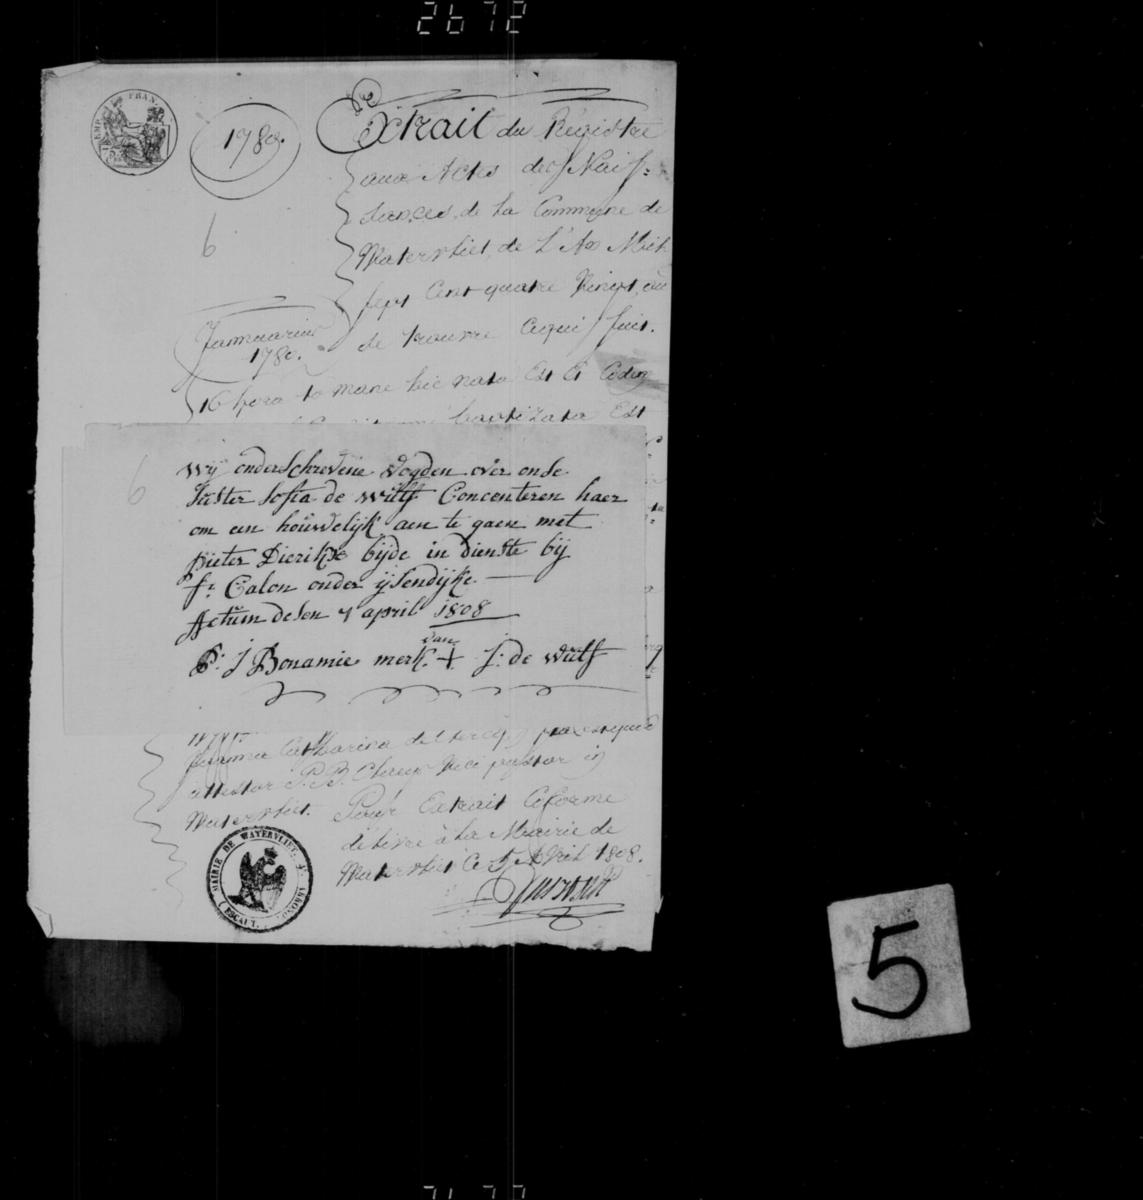 2672
EMP. FRAN.
1780.
Extrait du Registre
aux Actes des Naiss:
sances, de la Commune de
Watervliet, de L'An Mil
sept Cent quatre Vingt, ou
Januarius
1780.
de trouve ce qui suit.
6
16 hora 10 mane hic nata Est et Eodem
baptizata Est
6
Wij onderschrevene Vogden over onse
suster Sofia de Wulf Concenteren haer
om een houwelijk aen te gaen met
pieter Dierikx bijde in dienste bij
fr: Calon onder ijsendijke
Actum desen 7 april 1808
P: J Bonamie merk + van J: de Wulf
Joanna Catharina
attestor P. B. vice pastor in
Watervliet. Pour Extrait Coforme
délivré à la Mairie de
Watervliet Ce 5 Avril 1808.
MAIRIE DE WATERVLIET. (ESCAUT.)
5